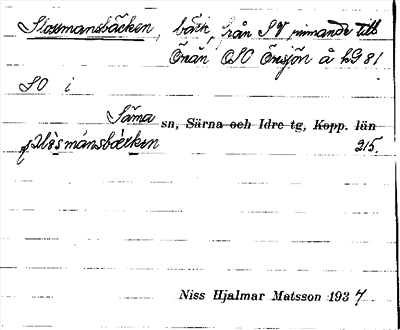 Slossmansbäcken, bäck, från SV rinnande till
Önån OSO Önsjön å LG 81
SO i
Särna sn, Särna och Idre tg, Kopp. län
215
Niss Hjalmar Matsson 1937